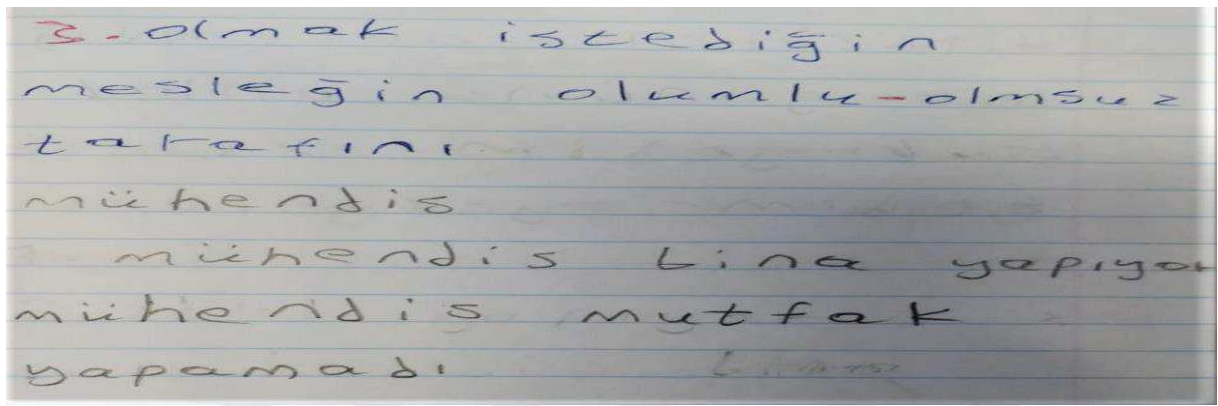 3. olmak istediğin
mesleğin olumlu-olmsuz
tarafını
mühendis
mühendis bina yapıyor
mühendis mutfak
yapamadı